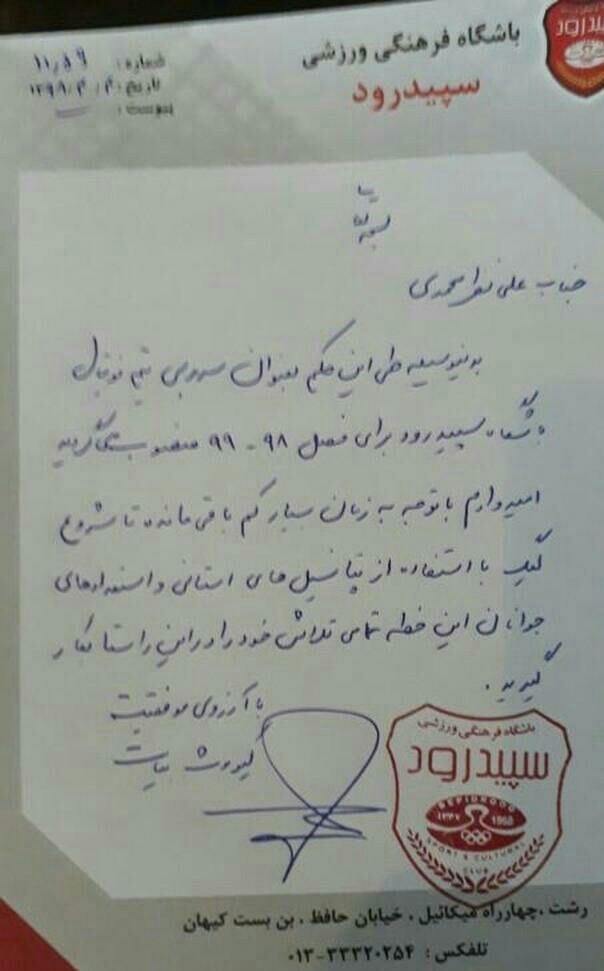 باشگاه فرهنگی ورزشی
سپیدرود
سپیدرود
شماره: ۱۱۰۵۹
تاریخ: ۱۳۹۸/۴/۴
پیوست:
بسمه تعالی
جناب علی نظرمحمدی
بدینوسیله طی این حکم بعنوان سرمربی تیم فوتبال
باشگاه سپیدرود برای فصل ۹۸-۹۹ منصوب میگردید
امیدوارم با توجه به زمان بسیار کم باقی مانده تا شروع
لیگ با استفاده از پتانسیل های استانی و استعدادهای
جوانان این خطه تمامی تلاش خود را در این راستا بکار
گیرید.
با آرزوی موفقیت
کیومرث بیات
باشگاه فرهنگی ورزشی
سپیدرود
SEPIDROOD
۱۳۴۷ 1968
SPORT & CULTURAL
CLUB
رشت ، چهارراه میکائیل ، خیابان حافظ ، بن بست کیهان
تلفکس: ۳۳۳۲۰۲۵۴-۰۱۳